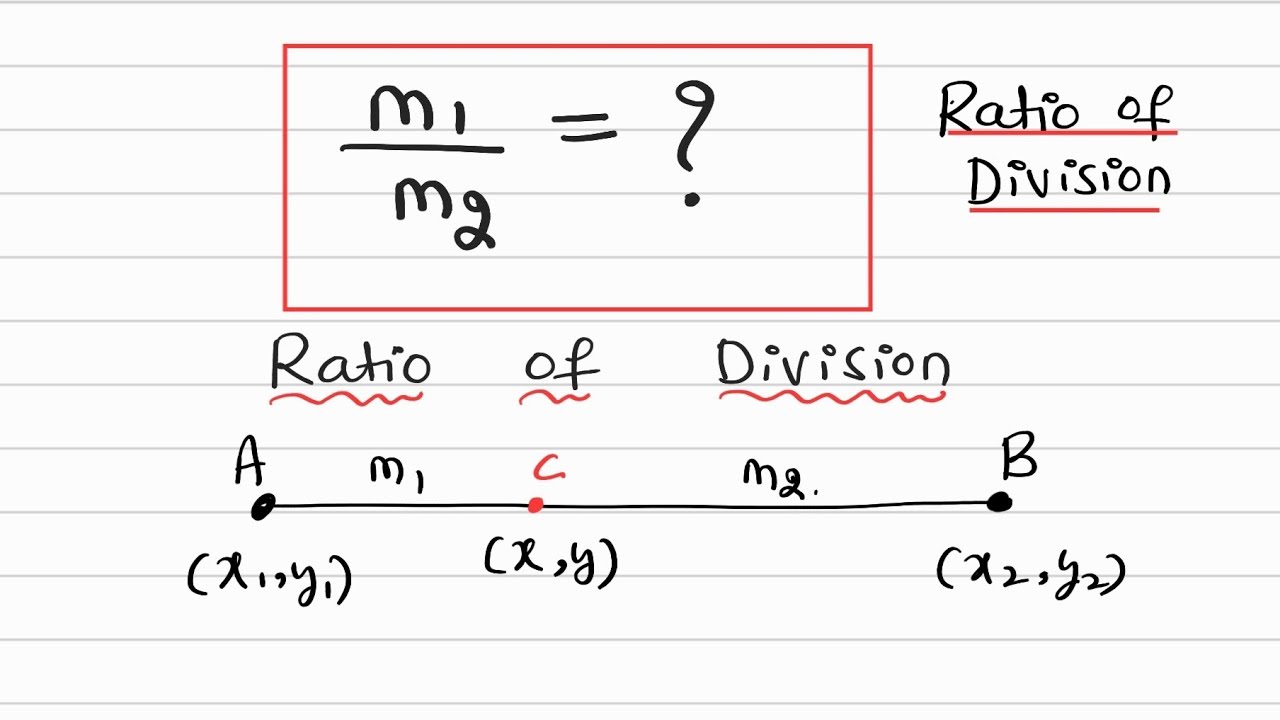 m₁/m₂ = ?
Ratio of
Division
Ratio of Division
A m₁ C m₂. B
(x₁,y₁) (x,y) (x₂,y₂)